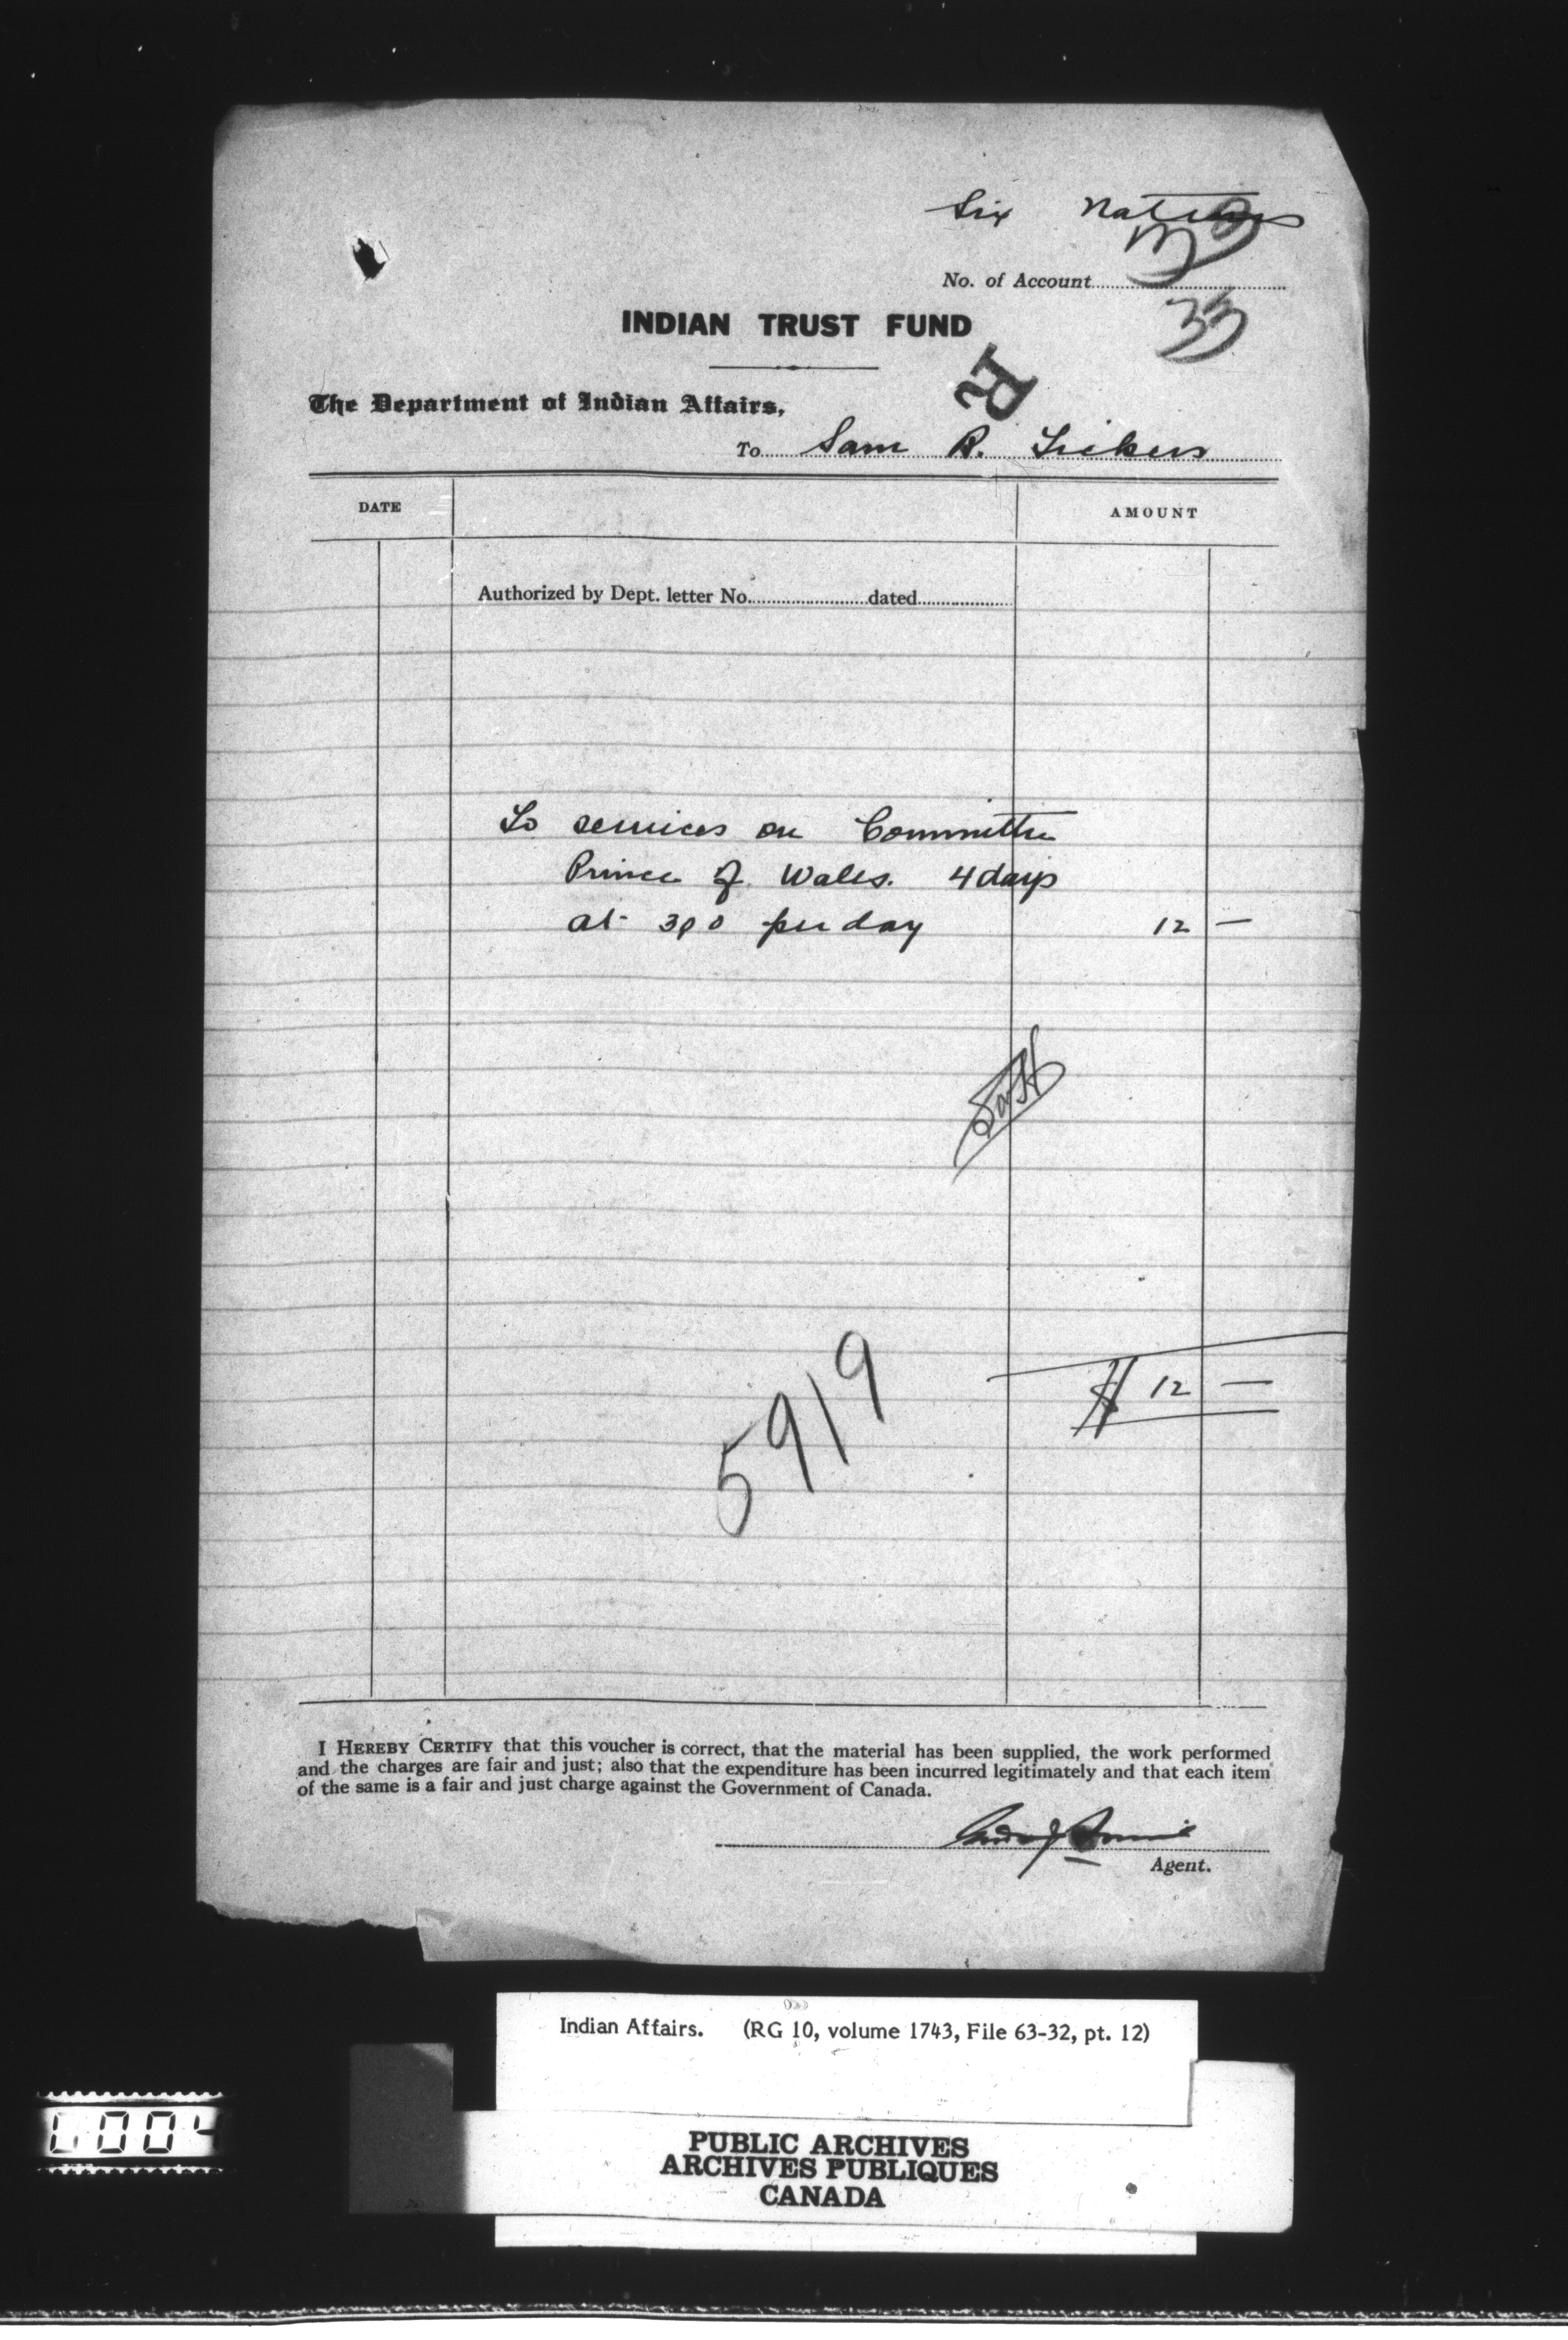 Six Nations
No. of Account
33
INDIAN TRUST FUND
R
The Department of Indian Affairs,
To Sam R. Lickers
DATE
AMOUNT
Authorized by Dept. letter No. dated
To services on Committee
Prince of Wales. 4 days
at 300 per day 12 —
5919
$ 12 —
I HEREBY CERTIFY that this voucher is correct, that the material has been supplied, the work performed
and the charges are fair and just; also that the expenditure has been incurred legitimately and that each item
of the same is a fair and just charge against the Government of Canada.
Agent.
Indian Affairs. (RG 10, volume 1743, File 63-32, pt. 12)
PUBLIC ARCHIVES
ARCHIVES PUBLIQUES
CANADA